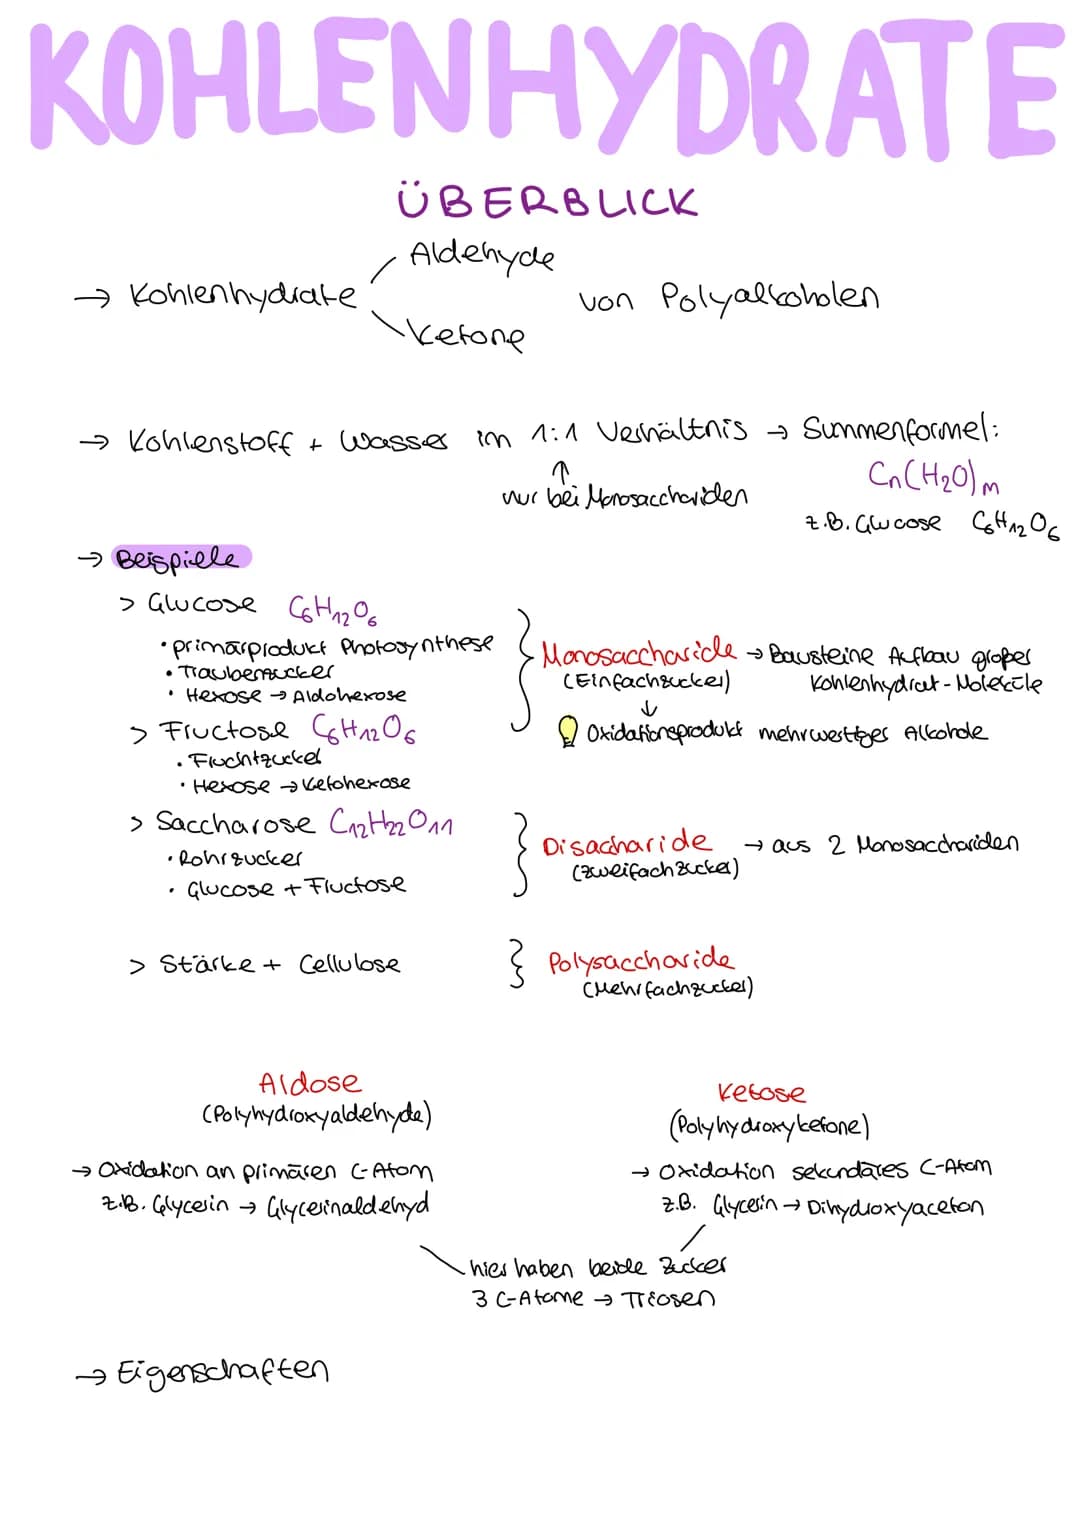 KOHLENHYDRATE
ÜBERBLICK
Aldehyde
→ Kohlenhydrate von Polyalkoholen
Ketone
→ Kohlenstoff + Wasser im 1:1 Verhältnis → Summenformel:
↑ Cn(H₂O)m
nur bei Monosacchariden
z.B. Glucose C₆H₁₂O₆
→ Beispiele
> Glucose C₆H₁₂O₆
• primärprodukt Photosynthese
• Traubenzucker
• Hexose → Aldohexose
Monosaccharide → Bausteine Aufbau großer
(Einfachzucker) Kohlenhydrat-Moleküle
↓
Oxidationsprodukt mehrwertiger Alkohole
> Fructose C₆H₁₂O₆
• Fruchtzucker
• Hexose → Ketohexose
> Saccharose C₁₂H₂₂O₁₁
• Rohrzucker
• Glucose + Fructose
Disacharide → aus 2 Monosacchariden
(zweifachzucker)
> Stärke + Cellulose
Polysaccharide
(Mehrfachzucker)
Aldose
(Polyhydroxyaldehyde)
→ Oxidation an primären C-Atom
z.B. Glycerin → Glycerinaldehyd
Ketose
(Polyhydroxyketone)
→ Oxidation sekundäres C-Atom
z.B. Glycerin → Dihydroxyaceton
hier haben beide Zucker
3 C-Atome → Triosen
→ Eigenschaften